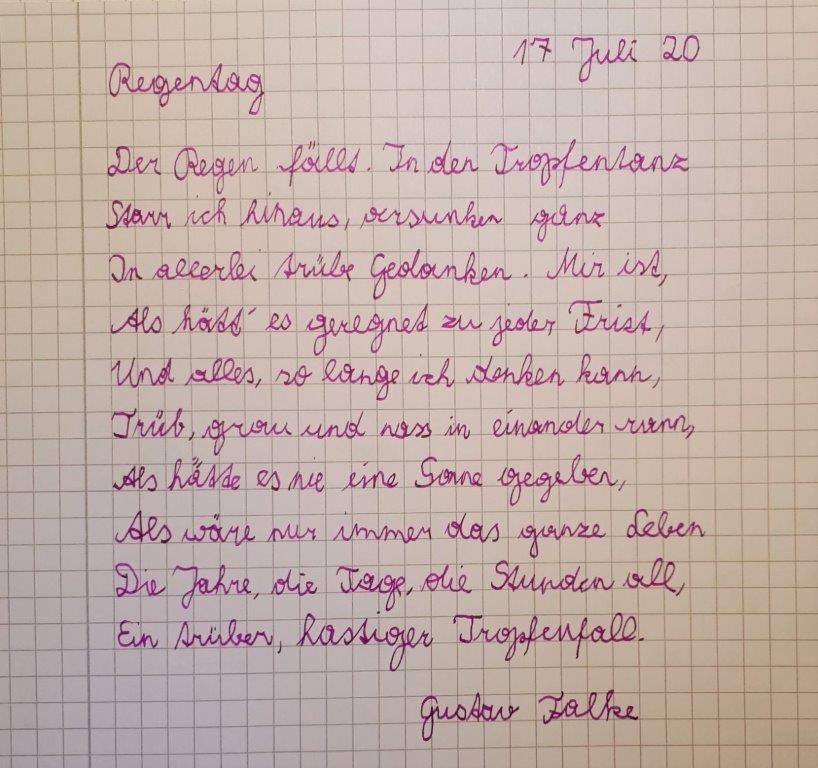 17 Juli 20
Regentag
Der Regen fällt. In den Tropfentanz
Starr ich hinaus, versunken ganz
In allerlei trübe Gedanken. Mir ist,
Als hätt' es geregnet zu jeder Frist,
Und alles, so lange ich denken kann,
Trüb, grau und nass in einander rann,
Als hätte es nie eine Sonne gegeben,
Als wäre nur immer das ganze Leben
Die Jahre, die Tage, die Stunden all,
Ein trüber, hastiger Tropfenfall.
Gustav Falke